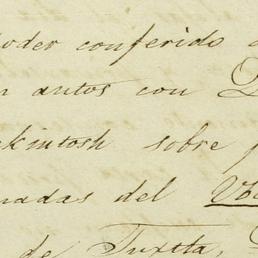 poder conferido
autos con
ckintosh sobre
nadas del
de Tuxtla,